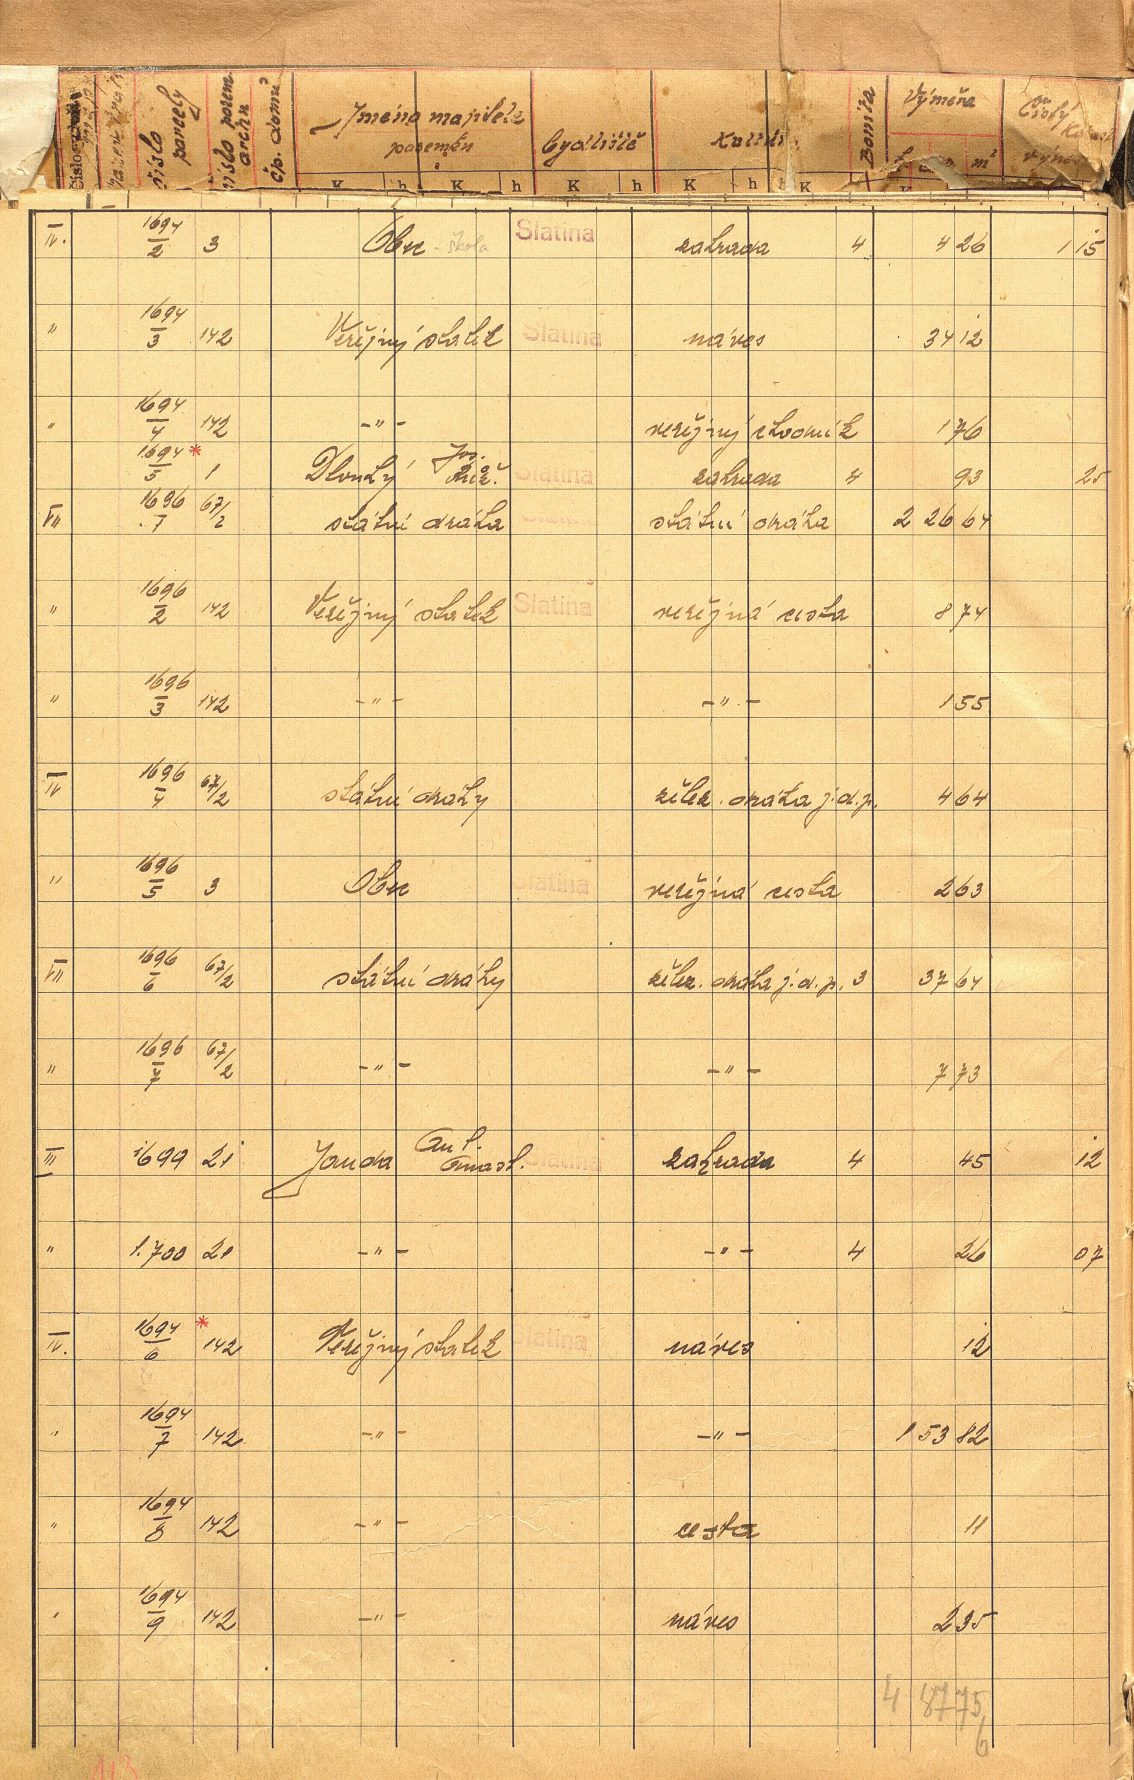 číslo parcely
číslo pozem. archu
čp. domu
Jména majitele pozemku
Bydliště
Bonita
Výměra
Čistý
výnos
K h K h K h K h K
IV. 1694/2 3 Obec - škola Slatina zahrada 4 4 26 1 15
" 1694/3 142 Veřejný statek Slatina náves 34 12
" 1694/4 142 -"- veřejný chodník 1 76
1694/5 * 1 Dlouhý Jos. Růž. Slatina zahrada 4 93 25
VII 1696/7 67/2 státní dráha Slatina státní dráha 2 26 64
" 1696/2 142 Veřejný statek Slatina veřejná cesta 8 74
" 1696/3 142 -"- -"- 1 55
IV 1696/4 67/2 státní dráhy želez. dráha j.d.p. 4 64
" 1696/5 3 Obec Slatina veřejná cesta 2 63
VII 1696/6 67/2 státní dráhy želez. dráha j.d.p. 3 37 64
" 1696/7 67/2 -"- -"- 7 73
III 1699 21 Janda Ant. Anast. Slatina zahrada 4 45 12
" 1.700 21 -"- -"- 4 26 07
IV. 1694/6 * 142 Veřejný statek Slatina náves 12
" 1694/7 142 -"- -"- 1 53 82
" 1694/8 142 -"- cesta 11
" 1694/9 142 -"- náves 2 35
4 87 75
6
113